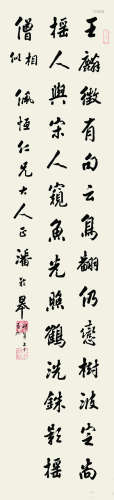 王麟徵有句云鳥翻仍戀樹波定尚
搖人與宋人窺魚光照鶴洗鉢影搖
僧相似
佩恒仁兄大人正 潘齡皋